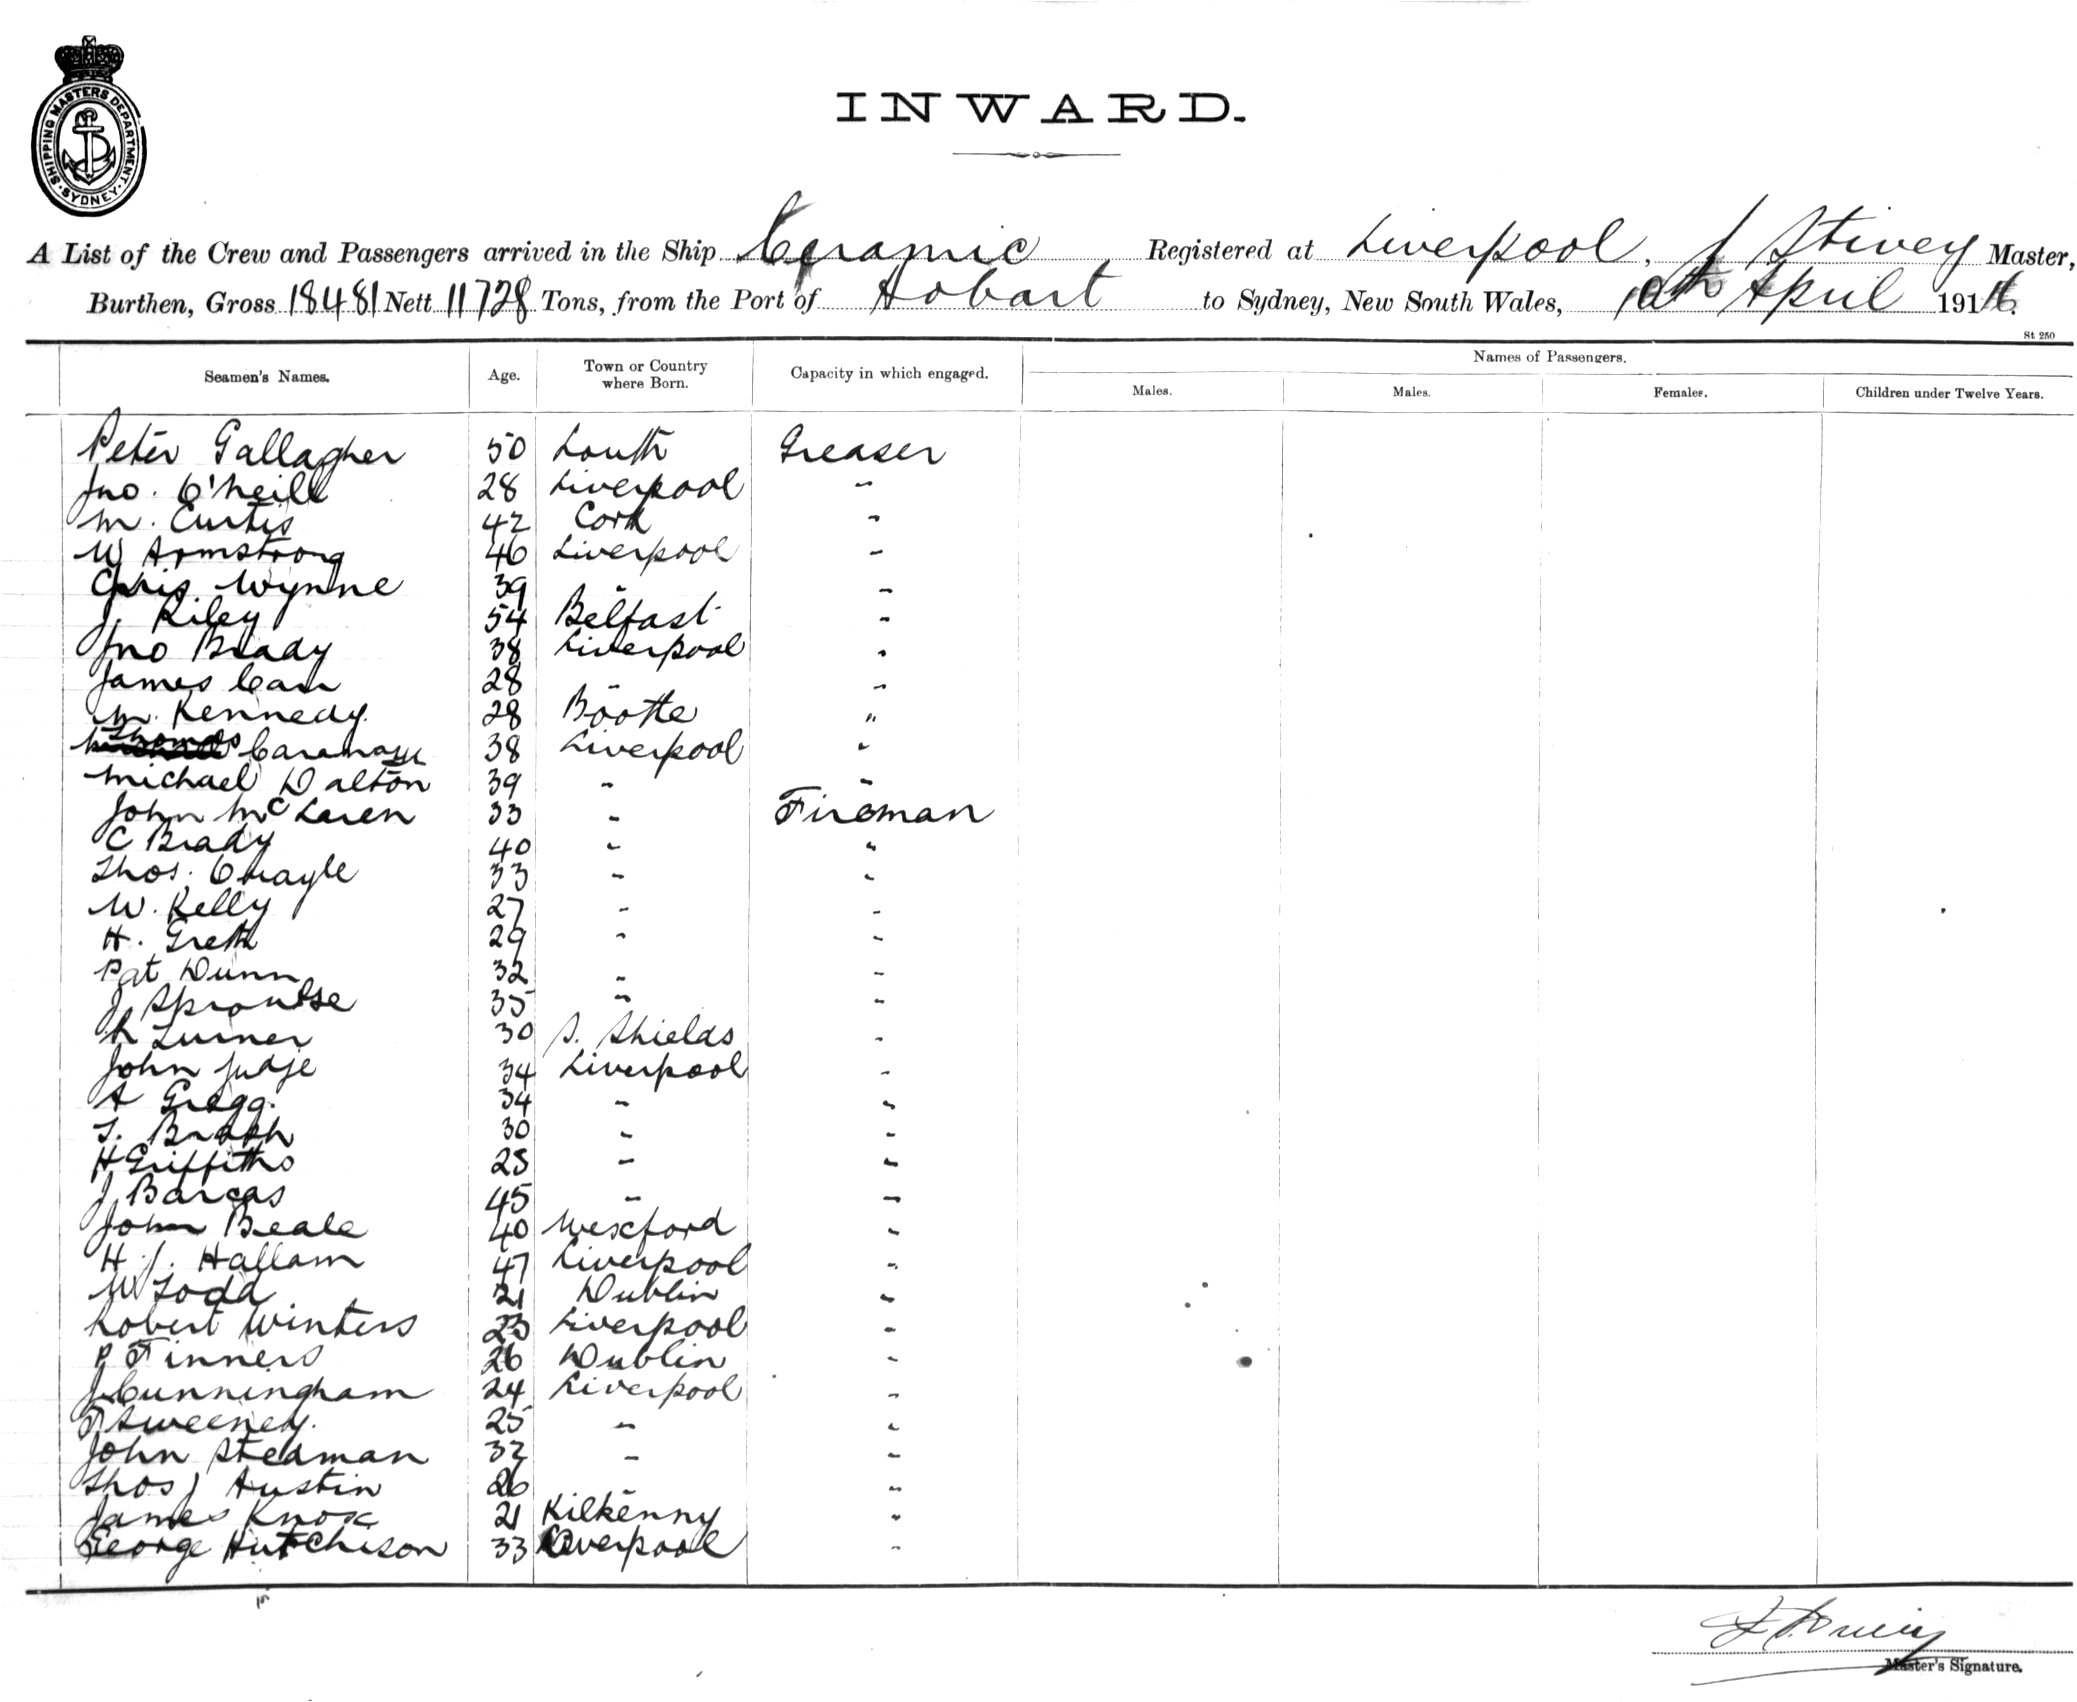 SHIPPING MASTERS DEPARTMENT. SYDNEY.
INWARD.
A List of the Crew and Passengers arrived in the Ship Ceramic Registered at Liverpool, J Stivey Master,
Burthen, Gross 18481 Nett 11728 Tons, from the Port of Hobart to Sydney, New South Wales, April 191
St 250
Seamen's Names. Age. Town or Country where Born. Capacity in which engaged. Names of Passengers.
Males. Males. Females. Children under Twelve Years.
Peter Gallagher 50 Louth Greaser
Jno. O'Neill 28 Liverpool "
M. Curtis 42 Cork "
W Armstrong 46 Liverpool "
Chris Wynne 39 " "
J. Riley 54 Belfast "
Jno Brady 38 Liverpool "
James Carr 28 " "
M. Kennedy. 28 Bootle "
Thomas 38 Liverpool "
Michael Dalton 39 " "
John McLaren 33 " Fireman
C Brady 40 " "
Thos. Quayle 33 " "
W. Kelly 27 " "
H. 29 " "
Pat Dunn 32 " "
J. 35 " "
R Turner 30 S. Shields "
John Judge 34 Liverpool "
A Gregg. 34 " "
T. 30 " "
H Griffiths 28 " "
J. 45 " "
John Beale 40 Wexford "
H. J. Hallam 47 Liverpool "
W Todd 21 Dublin "
Robert Winters 23 Liverpool "
P Finners 26 Dublin "
J. Cunningham 24 Liverpool "
T Sweeney. 25 " "
John Stedman 32 " "
Thos) Austin 26 " "
James Knox 21 Kilkenny "
George Hutchison 33 Liverpool "
Master's Signature.